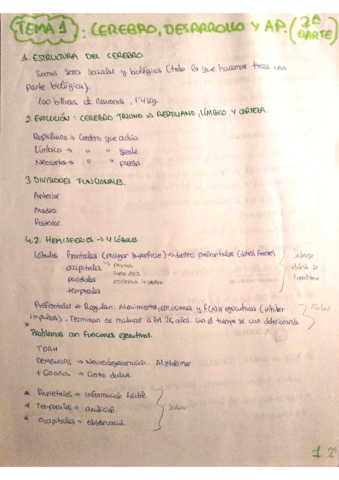 TEMA 1: CEREBRO, DESARROLLO Y AP. (2ª PARTE)
1. ESTRUCTURA DEL CEREBRO.
Somos seres sociales y biológicos (todo lo que hacemos tiene una
parte biológica).
100 billones de neuronas, 1'4 kg.
2. EVOLUCIÓN: CEREBRO TRIUNO => REPTILIANO, LÍMBICO Y CORTEZA.
Reptiliano → Cerebro que actúa
Límbico → " " siente
Neocorteza → " " piensa
3. DIVISIONES FUNCIONALES.
Anterior
Media
Posterior.
4. 2. HEMISFERIOS → 4 LÓBULOS.
Lóbulos frontales (mayor superficie) → dentro prefrontales (detrás frente)
occipitales
parietales
temporales
Saberse
dónde se
Prefrontales → Regulan: Movimiento, emociones y f(x)n ejecutivas (inhibir
impulsos). Terminan de madurar a los 25 años. Con el tiempo se van deteriorando
Problemas con funciones ejecutivas:
TDAH
DEMENCIAS → Neurodegeneración. Alzheimer.
* Parietales → información táctil.
* Temporales → audición.
* Occipitales → observación.
1 2º